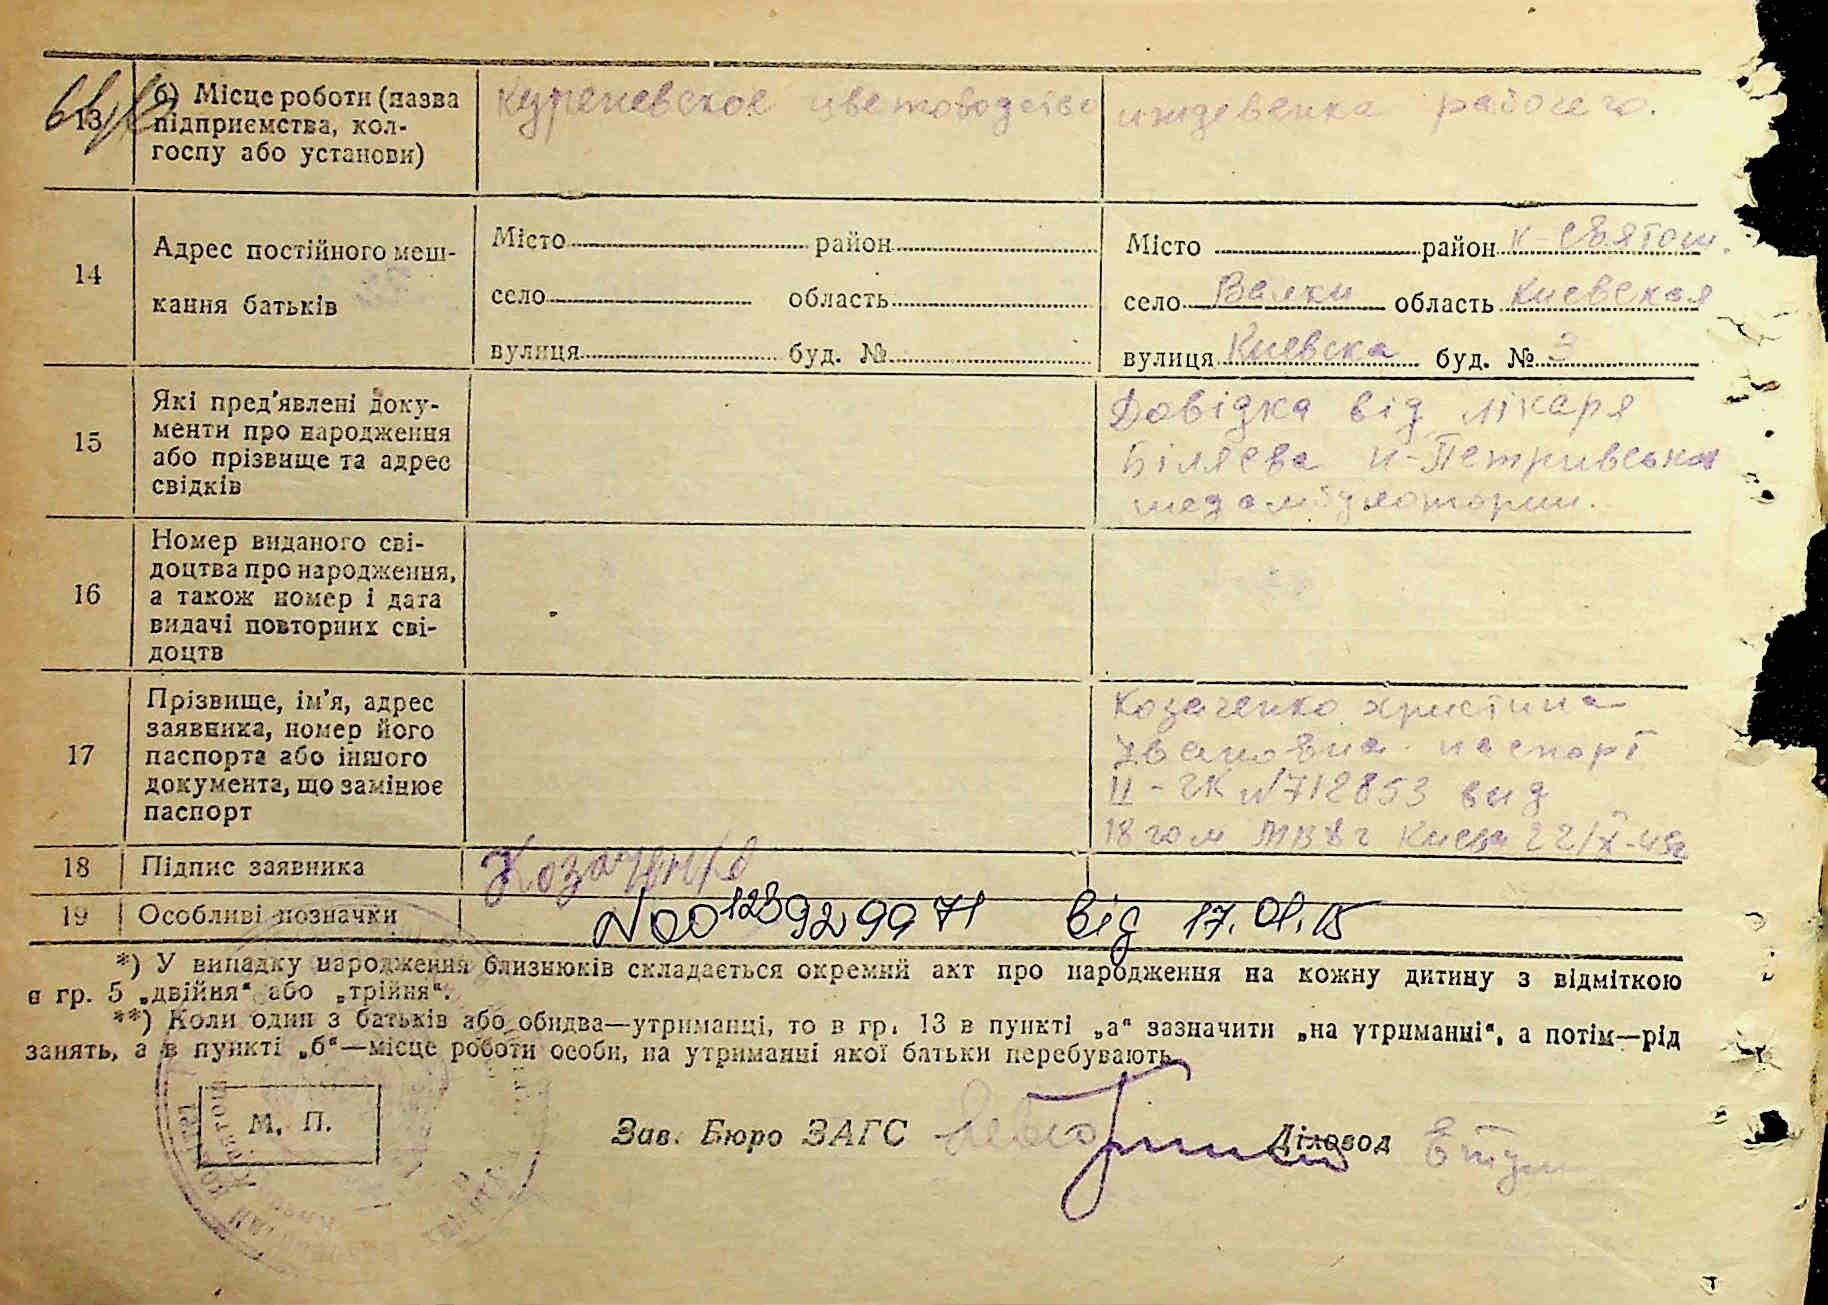 13 б) Місце роботи (назва підприємства, колгоспу або установи)
Куреневское цветоводство
иждевенка рабочего.
14 Адрес постійного мешкання батьків
Місто район
село область
вулиця буд. №
Місто район К-Святош.
село Велки область Киевская
вулиця Киевска буд. № 3
15 Які пред'явлені документи про народження або прізвище та адрес свідків
Довідка від лікаря
Біляєва П-Петрівська
16 Номер виданого свідоцтва про народження, а також номер і дата видачі повторних свідоцтв
17 Прізвище, ім'я, адрес заявника, номер його паспорта або іншого документа, що замінює паспорт
Козаченко христина
Ивановна паспорт
№ 712853 вид
18 гом МВД г Киева 22/X
18 Підпис заявника
Козаченко
19 Особливі позначки
№00123929971 від 17.01.15
*) У випадку народження близнюків складається окремий акт про народження на кожну дитину з відміткою
в гр. 5 „двійня“ або „трійня“.
**) Коли один з батьків або обидва—утриманці, то в гр. 13 в пункті „а“ зазначити „на утриманні“, а потім—рід
занять, а в пункті „б“—місце роботи особи, на утриманні якої батьки перебувають.
М. П.
Зав. Бюро ЗАГС
Діловод